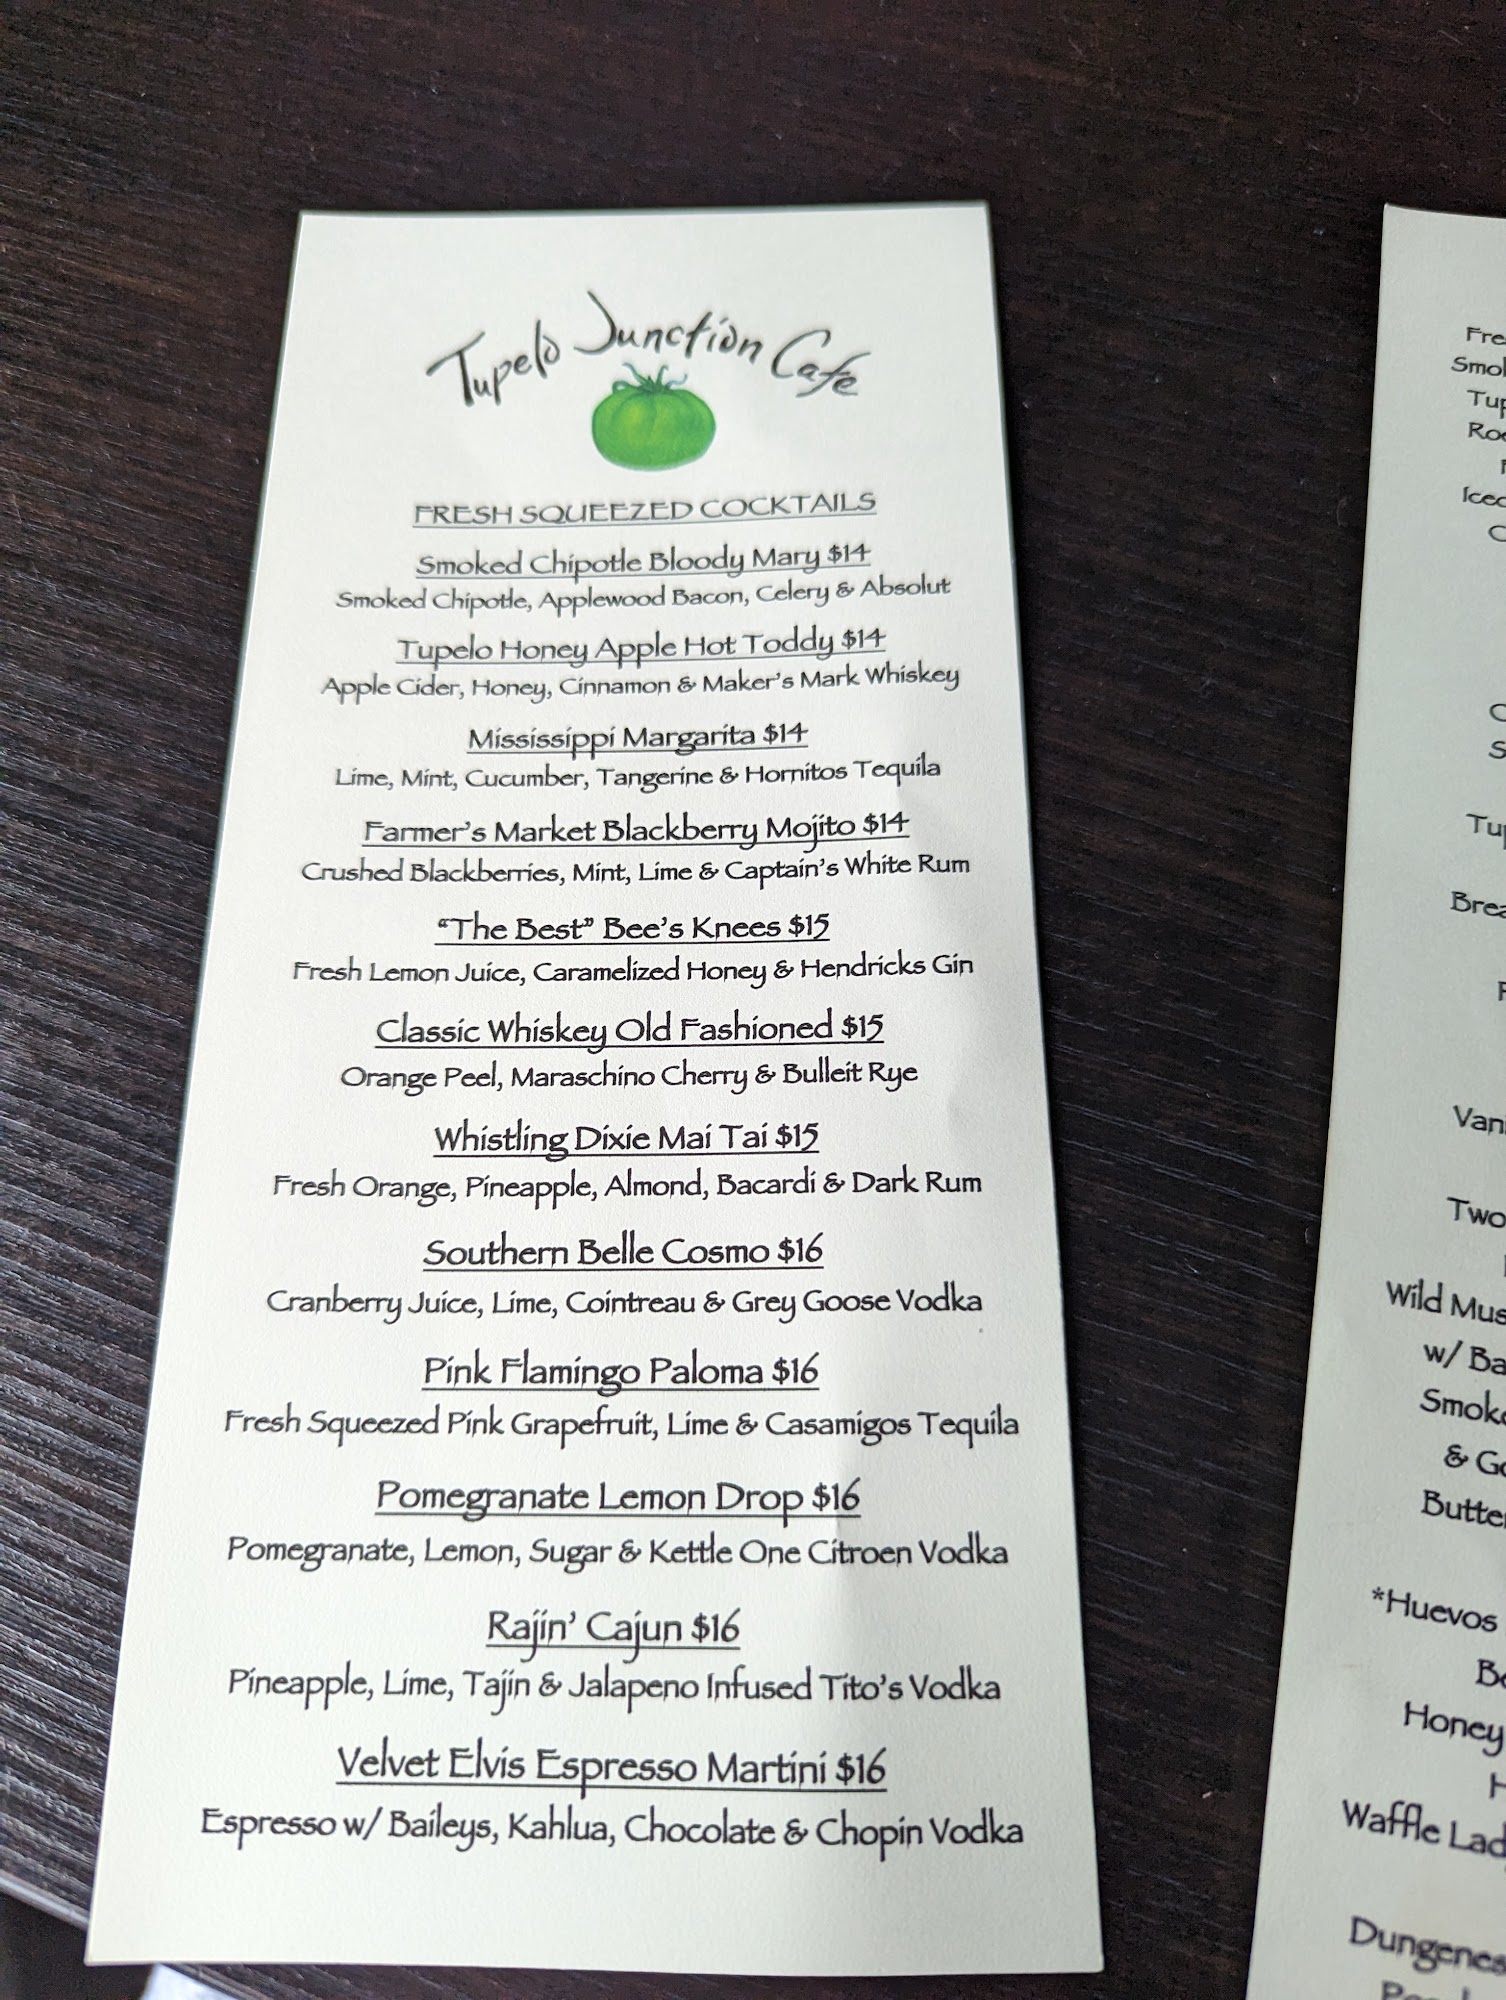 Tupelo Junction Cafe
FRESH SQUEEZED COCKTAILS
Smoked Chipotle Bloody Mary $14
Smoked Chipotle, Applewood Bacon, Celery & Absolut
Tupelo Honey Apple Hot Toddy $14
Apple Cider, Honey, Cinnamon & Maker's Mark Whiskey
Mississippi Margarita $14
Lime, Mint, Cucumber, Tangerine & Hornitos Tequila
Farmer's Market Blackberry Mojito $14
Crushed Blackberries, Mint, Lime & Captain's White Rum
“The Best” Bee's Knees $15
Fresh Lemon Juice, Caramelized Honey & Hendricks Gin
Classic Whiskey Old Fashioned $15
Orange Peel, Maraschino Cherry & Bulleit Rye
Whistling Dixie Mai Tai $15
Fresh Orange, Pineapple, Almond, Bacardi & Dark Rum
Southern Belle Cosmo $16
Cranberry Juice, Lime, Cointreau & Grey Goose Vodka
Pink Flamingo Paloma $16
Fresh Squeezed Pink Grapefruit, Lime & Casamigos Tequila
Pomegranate Lemon Drop $16
Pomegranate, Lemon, Sugar & Kettle One Citroen Vodka
Rajin' Cajun $16
Pineapple, Lime, Tajin & Jalapeno Infused Tito's Vodka
Velvet Elvis Espresso Martini $16
Espresso w/ Baileys, Kahlua, Chocolate & Chopin Vodka
Two
Wild
w/
&
*Huevos
Honey
Waffle